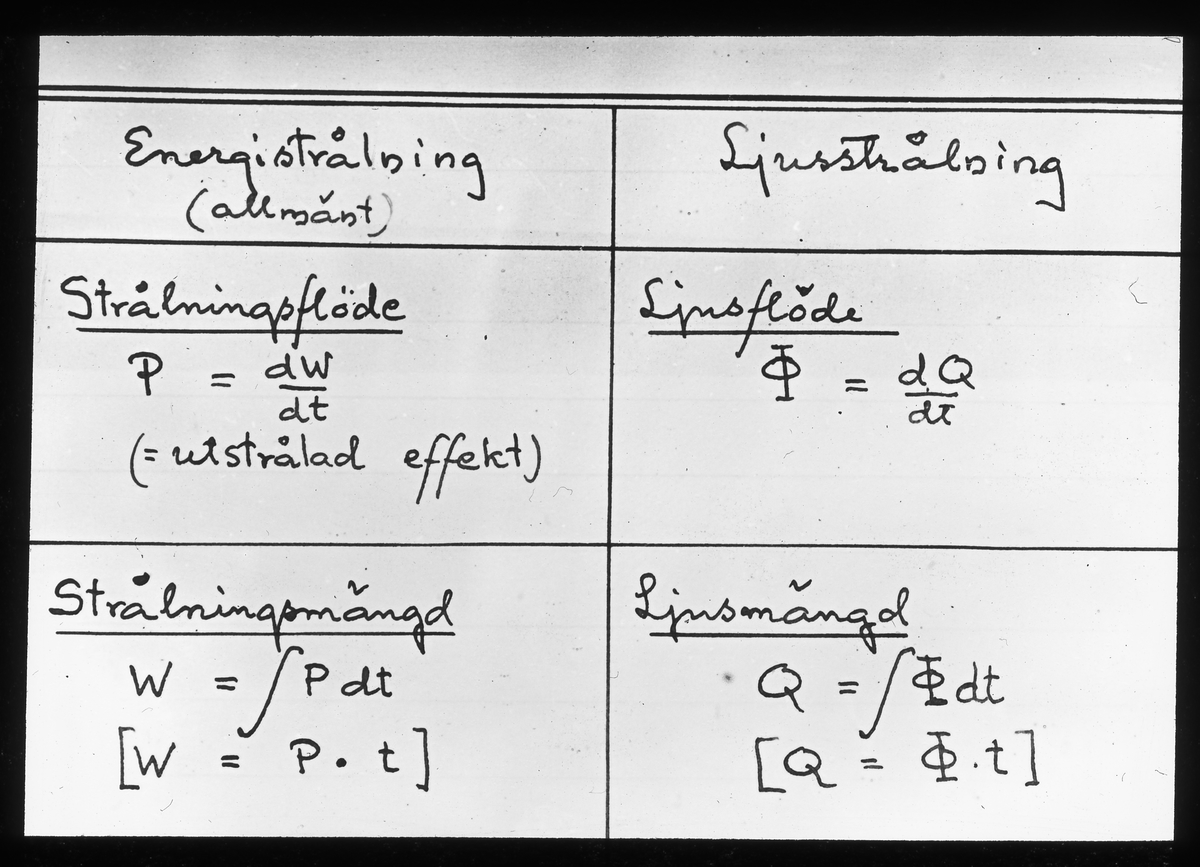 Energistrålning
(allmänt)
Ljusstrålning
Strålningsflöde
P = dW/dt
(= utstrålad effekt)
Ljusflöde
Φ = dQ/dt
Strålningsmängd
W = ∫ P dt
[W = P · t]
Ljusmängd
Q = ∫ Φ dt
[Q = Φ · t]